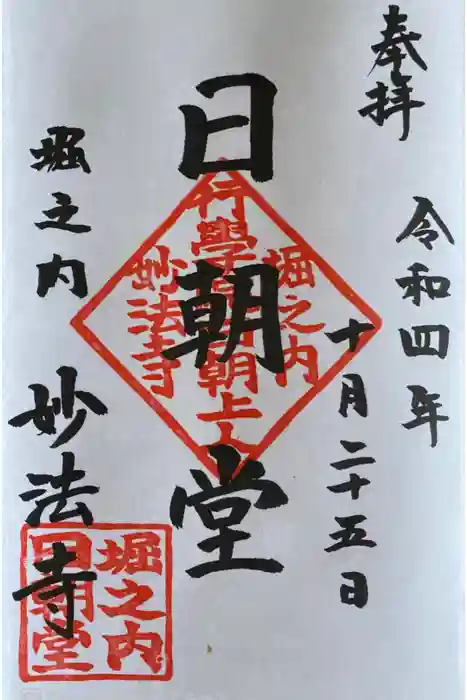 奉拝
令和四年
十月二十五日
日朝堂
堀之内
行學院日朝上人
妙法寺
堀之内
妙法寺
堀之内
日朝堂